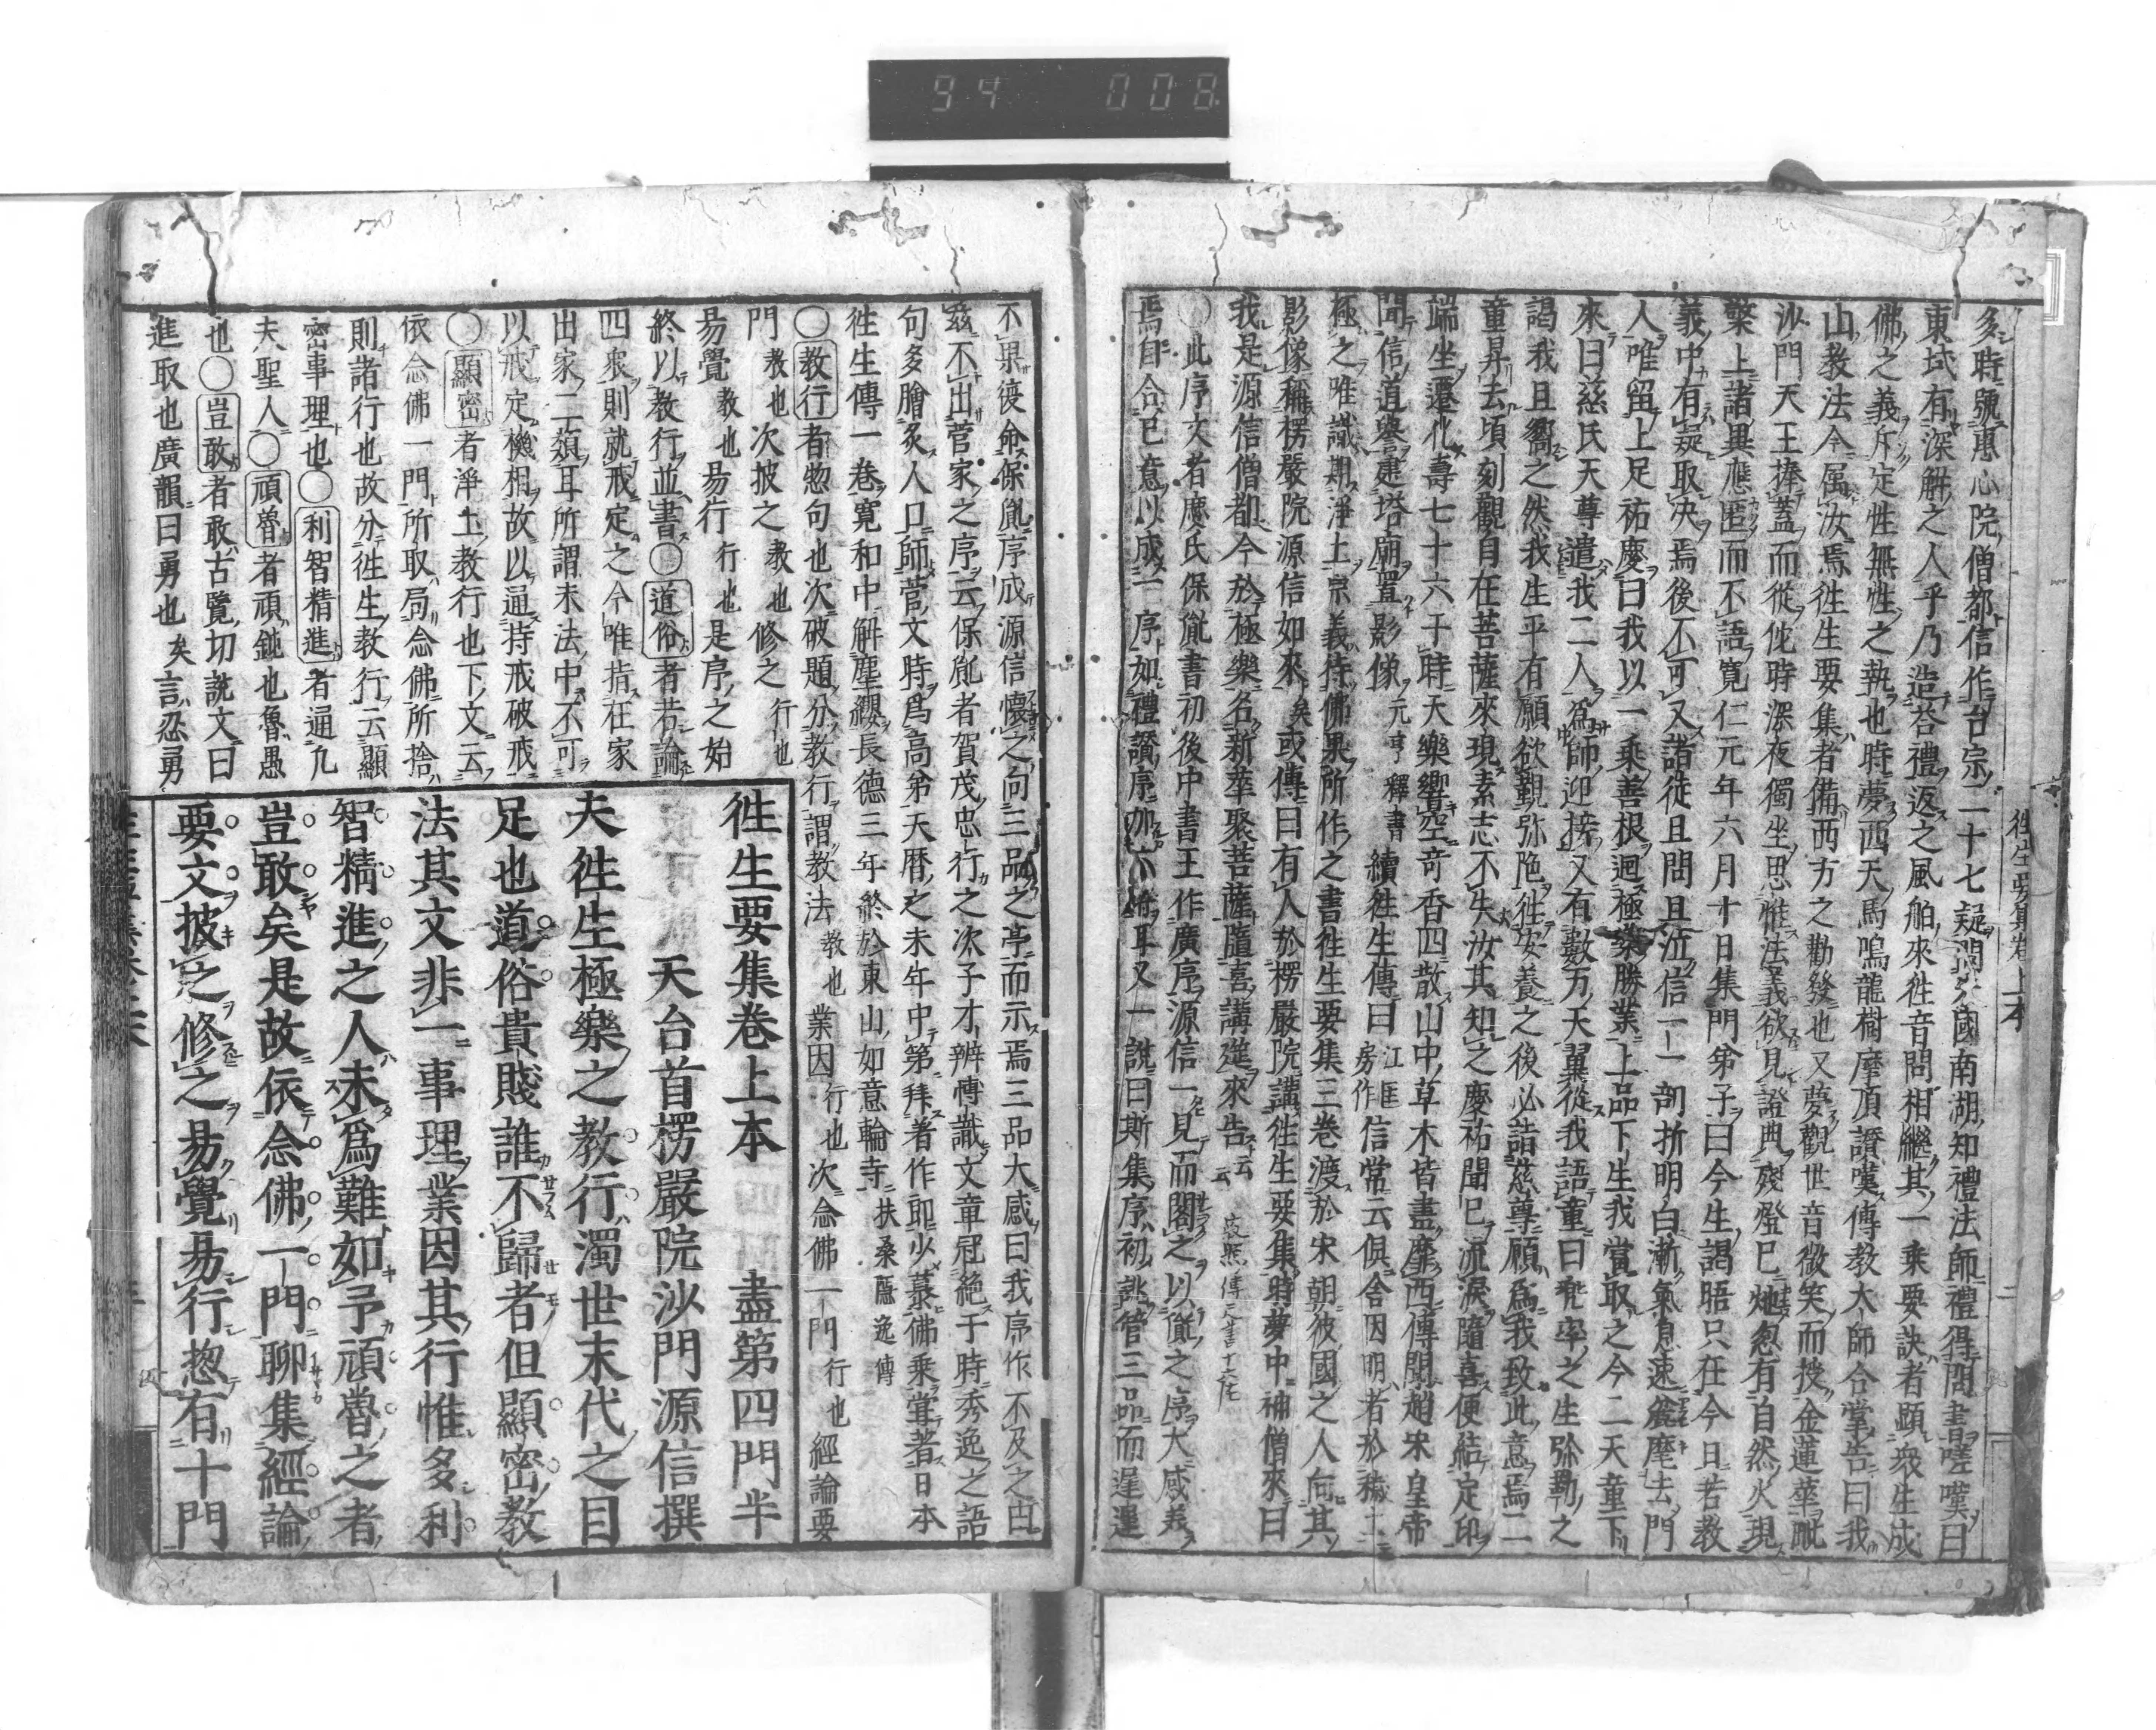 94 008
往生要集卷上本
多時號惠心院僧都信作台宗二十七疑問宋國南湖知禮法師禮得問書嗟嘆曰
東域有深解之人乎乃造荅禮返之風舶來往音問相繼其一乘要訣者顯衆生成
佛之義斥定性無性之執也時夢西天馬鳴龍樹摩頂讃嘆傳教大師合掌告曰我
山教法今属汝焉往生要集者備西方之勸發也又夢觀世音微笑而授金蓮華毗
沙門天王捧蓋而從侘時深夜獨坐思惟法義欲見證典殘燈已灺忽有自然火現
檠上諸異應匿而不語寬仁元年六月十日集門弟子曰今生謁晤只在今日若教
義中有疑取决焉後不可又諸徒且問且泣信一一剖折明白漸氣息速麾去門
人唯留上足祐慶曰我以一乘善根迴極樂勝業上品下生我當取之今二天童下
來曰慈氏天尊遣我二人爲師迎接又有數万天翼從我語童曰兜率之生弥勒之
謁我且嚮之然我生平有願欲覲弥陁往安養之後必詣慈尊願爲我致此意焉二
童昇去頃刻觀自在菩薩來現素志不失汝其知之慶祐聞已流淚隨喜便結定印
端坐遷化壽七十六于時天樂響空竒香四散山中草木皆盡靡西傳聞趙宋皇帝
聞信道譽建塔廟置影像元亨釋書續往生傳曰江匡房作信常云倶舍因明者於穢土
極之唯識期淨土宗義待佛果所作之書往生要集三卷渡於宋朝彼國之人向其
影像稱楞嚴院源信如來矣或傳曰有人於楞嚴院講往生要集時夢中神僧來曰
我是源信僧都今於極樂名新華聚菩薩隨喜講莚來告云云
○此序文者慶氏保胤書初後中書王作廣序源信一見而閣之以胤之序大感義
焉自合已意以成一序如禮讃序加一耳又一說曰斯集序初誂管三品而遲遲
不果復命保胤序成源信懷之向三品之亭而示焉三品大感曰我序作不及之出
茲不出菅家之序云保胤者賀茂忠行之次子才辨愽識文章冠絶于時秀逸之語
句多膾炙人口師菅文時爲高弟天曆之末年中第拜著作郎少慕佛乘甞著日本
往生傳一卷寬和中解塵纓長德三年終於東山如意輪寺扶桑隱逸傳
○教行者惣句也次破題分教行謂教法教也業因行也次念佛一門行也經論要
門教也次披之教也修之行也
易覺教也易行行也是序之始
終以教行並書○道俗者若論
四衆則就戒定之今唯指在家
出家二類耳所謂末法中不可
以戒定機相故以通持戒破戒
○顯密者淨土教行也下文云
依念佛一門所取局念佛所捨
則諸行也故分往生教行云顯
密事理也○利智精進者通九
夫聖人○頑魯者頑鈍也魯愚
也○豈敢者敢古覽切說文曰
進取也廣韻曰勇也矣言忍勇
往生要集卷上本 盡第四門半
天台首楞嚴院沙門源信撰
夫往生極樂之教行濁世末代之目
足也道俗貴賤誰不歸者但顯密教
法其文非一事理業因其行惟多利
智精進之人未爲難如予頑魯之者
豈敢矣是故依念佛一門聊集經論
要文披之修之易覺易行惣有十門